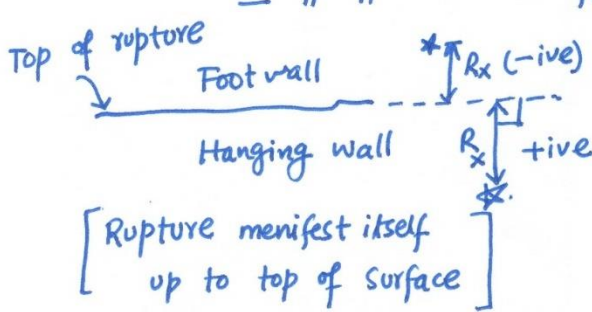 Top of rupture
Foot wall
Rx (-ive)
Hanging wall
Rx +ive
[Rupture menifest itself
up to top of surface]